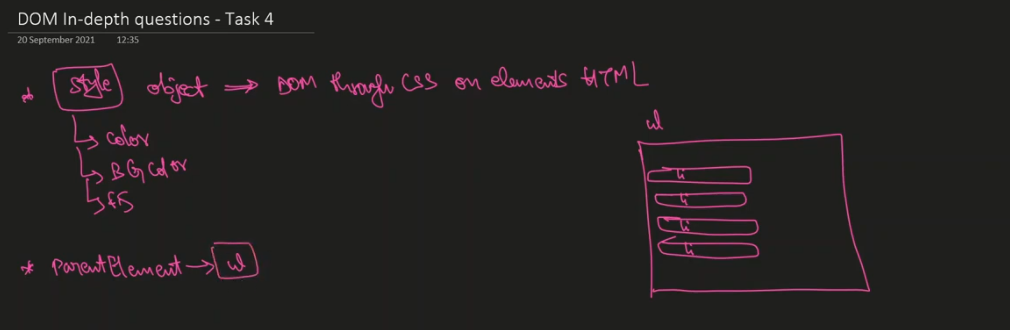 DOM In-depth questions - Task 4
20 September 2021 12:35
* style object → DOM through CSS on elements HTML
color
BG color
fs
* ParentElement → ul
ul
li
li
li
li